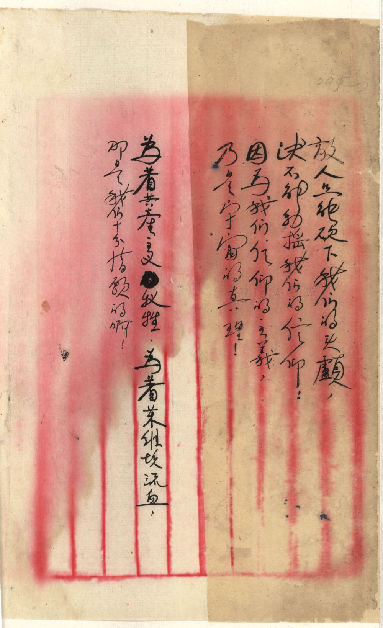 敌人只能砍下我们的头顱，
决不能動摇我们的信仰！
因为我们信仰的主義，
乃是宇宙的真理！
为着共產主义牺牲，为着苏维埃流血，
那是我们十分情願的啊！